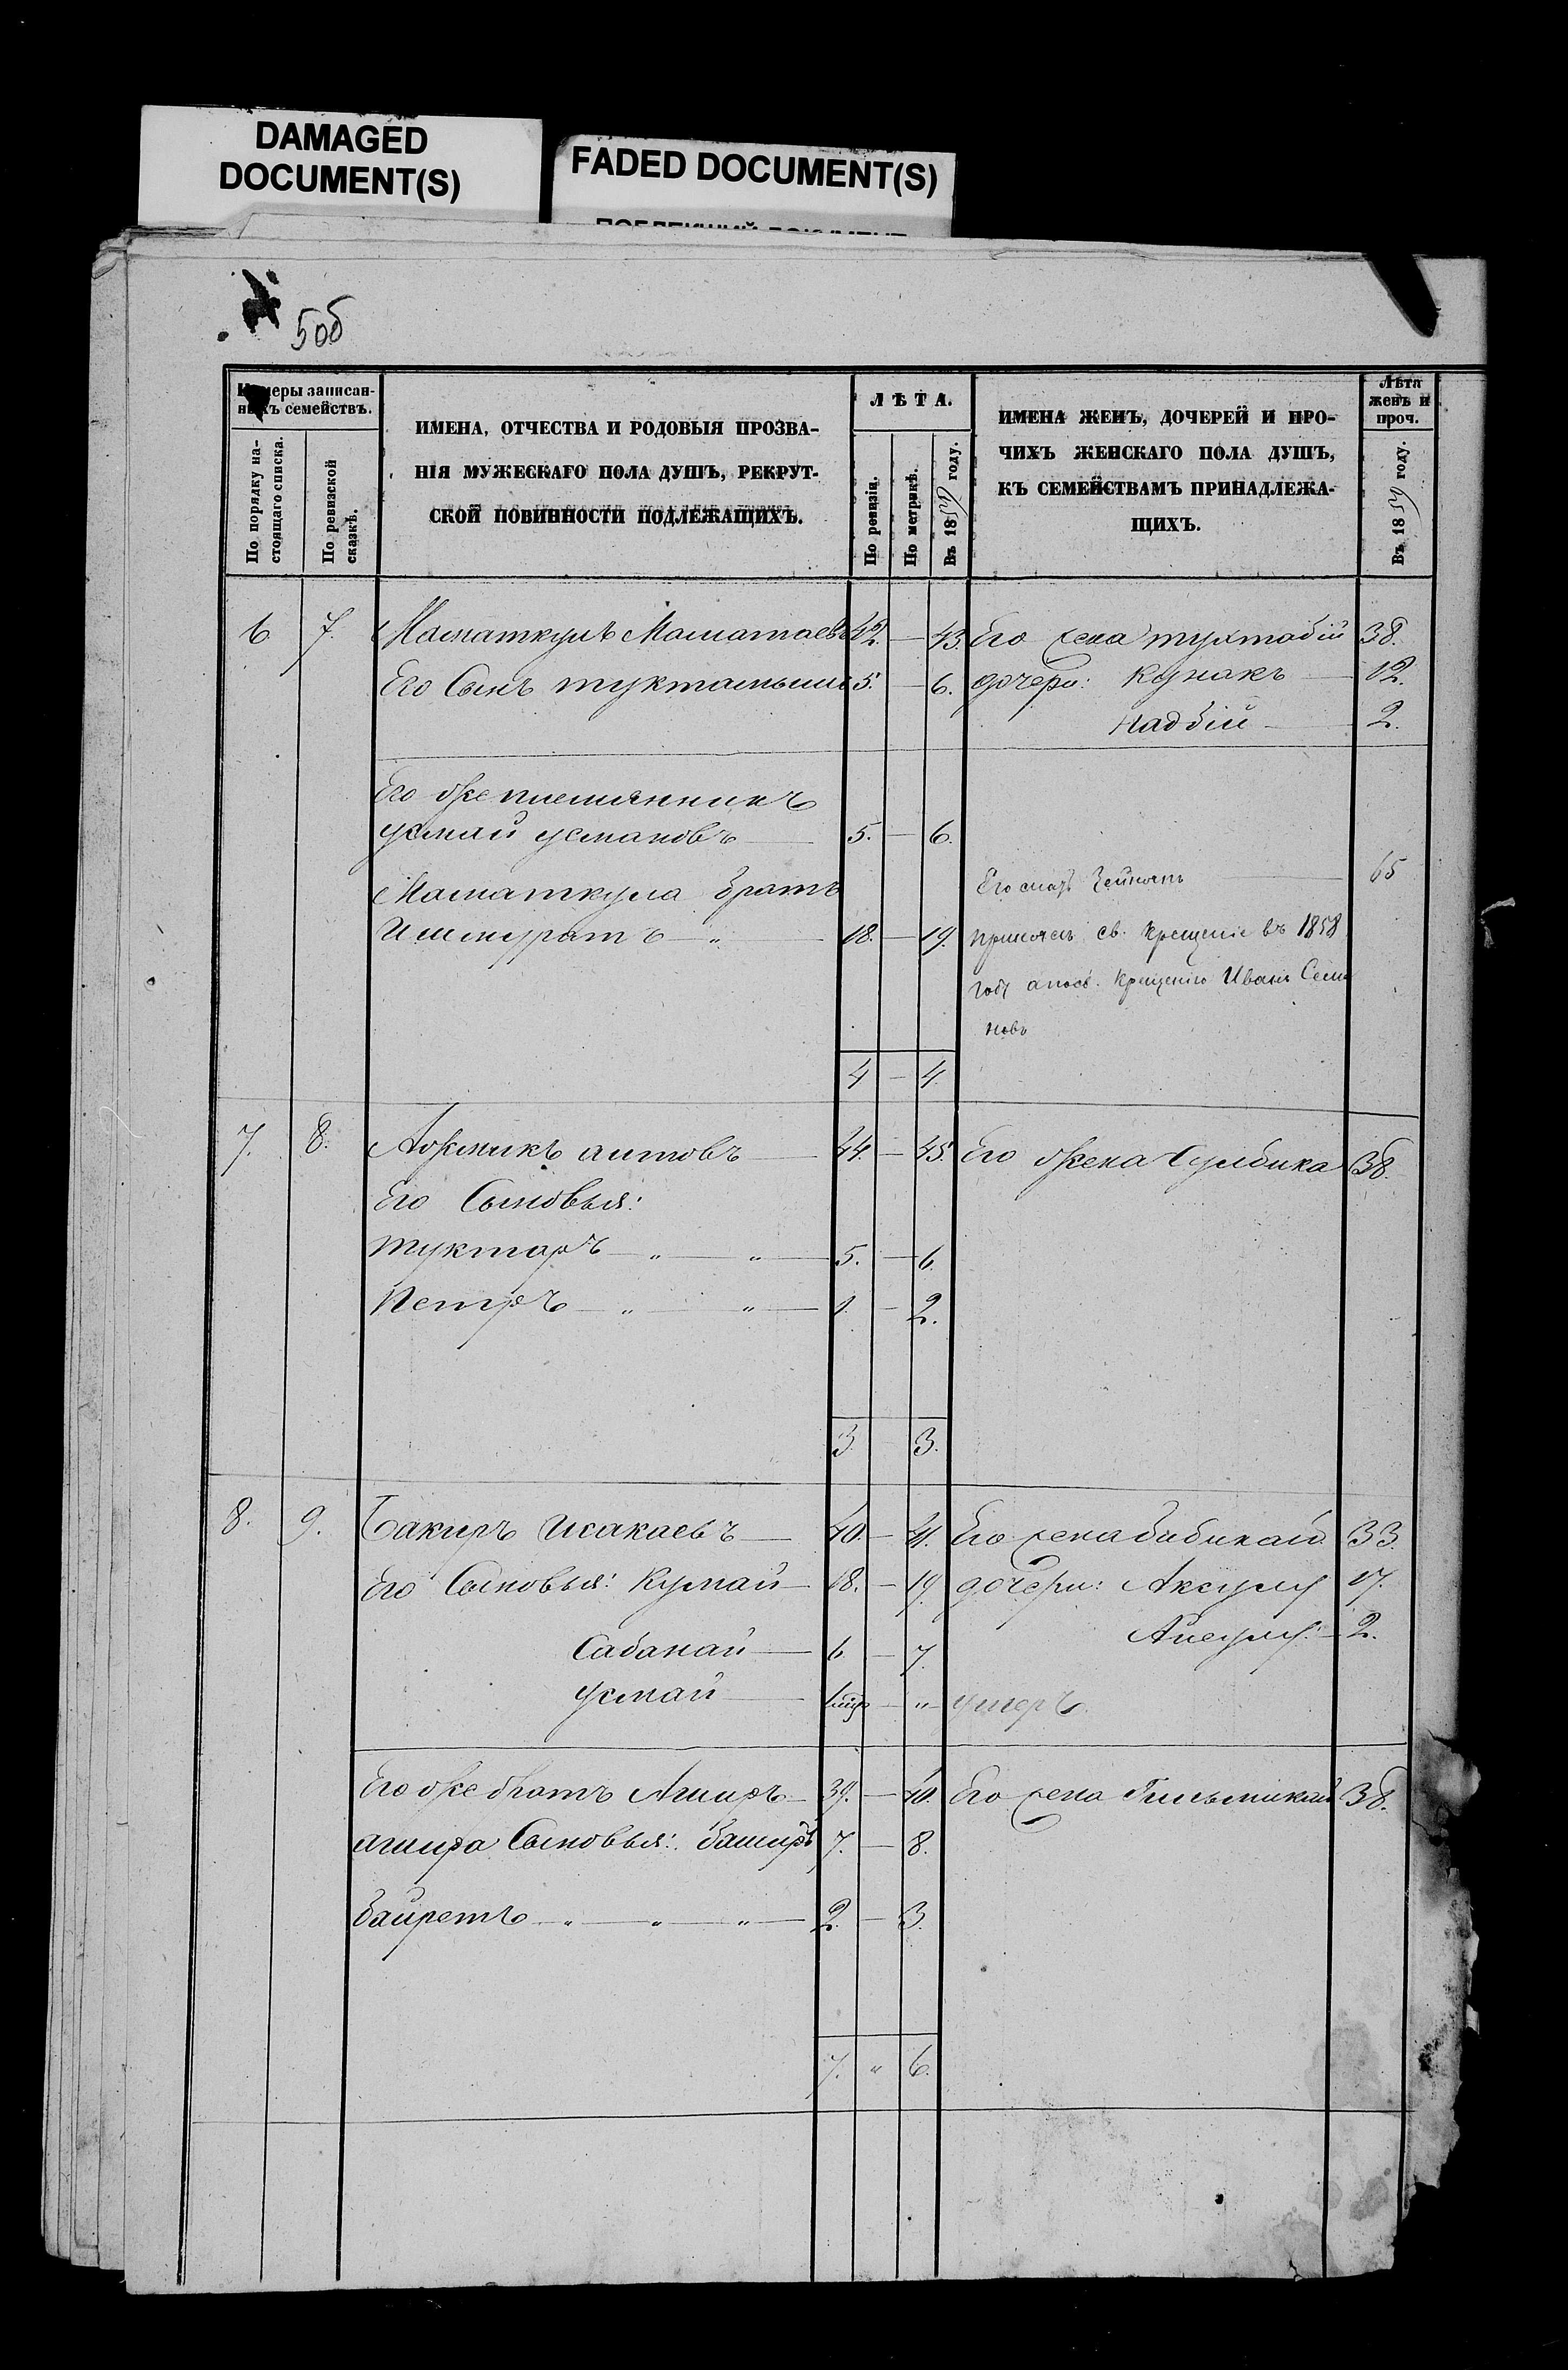 DAMAGED
DOCUMENT(S)
FADED DOCUMENT(S)
50б
Номеры записан-
ныхъ семействъ.
По порядку на-
стоящаго списка.
По ревизской
сказкѣ.
ИМЕНА, ОТЧЕСТВА И РОДОВЫЯ ПРОЗВА-
НІЯ МУЖЕСКАГО ПОЛА ДУШЪ, РЕКРУТ-
СКОЙ ПОВИННОСТИ ПОДЛЕЖАЩИХЪ.
ЛѢТА.
По ревизіи.
По метрикѣ.
Въ 1859 году.
ИМЕНА ЖЕНЪ, ДОЧЕРЕЙ И ПРО-
ЧИХЪ ЖЕНСКАГО ПОЛА ДУШЪ,
КЪ СЕМЕЙСТВАМЪ ПРИНАДЛЕЖА-
ЩИХЪ.
Лѣта
женъ и
проч.
Въ 1859 году.
6 7. Маматкулъ Маматаевъ 42. — 43. Его жена тухтабій 38.
Его Сынъ туктамышъ 5. — 6. дочери: Кунакъ — 12.
Надбій — 2.
Его же племянникъ
усмай усмановъ — 5. — 6.
Его мать Зейнапъ — 65
Маматкула братъ
Ишмуратъ — „ — 18. — 19. принялъ св. Крещеніе въ 1858
году а по св. Крещенію Иванъ Семе
новъ
4 — 4
7. 8. Аожмикъ аитовъ — 44. — 45. Его жена Сумбика 38.
Его Сыновья:
туктаръ — „ — „ — 5. — 6
Петръ — „ — „ — 1. — 2.
3 3.
8. 9. Бакиръ Исакаевъ — 40. — 41. Его жена бибикай 33.
Его Сыновья: Кумай — 18. — 19. дочери: Аксулу 17.
Сабанай — 6 — 7. Айсулу — 2.
усмай — „ — умеръ
Его же братъ Аширъ — 39. — 40. Его жена 38.
ашира Сыновья: баширъ 7. — 8.
байретъ — „ — „ — „ — 2. — 3.
7. „ 6.